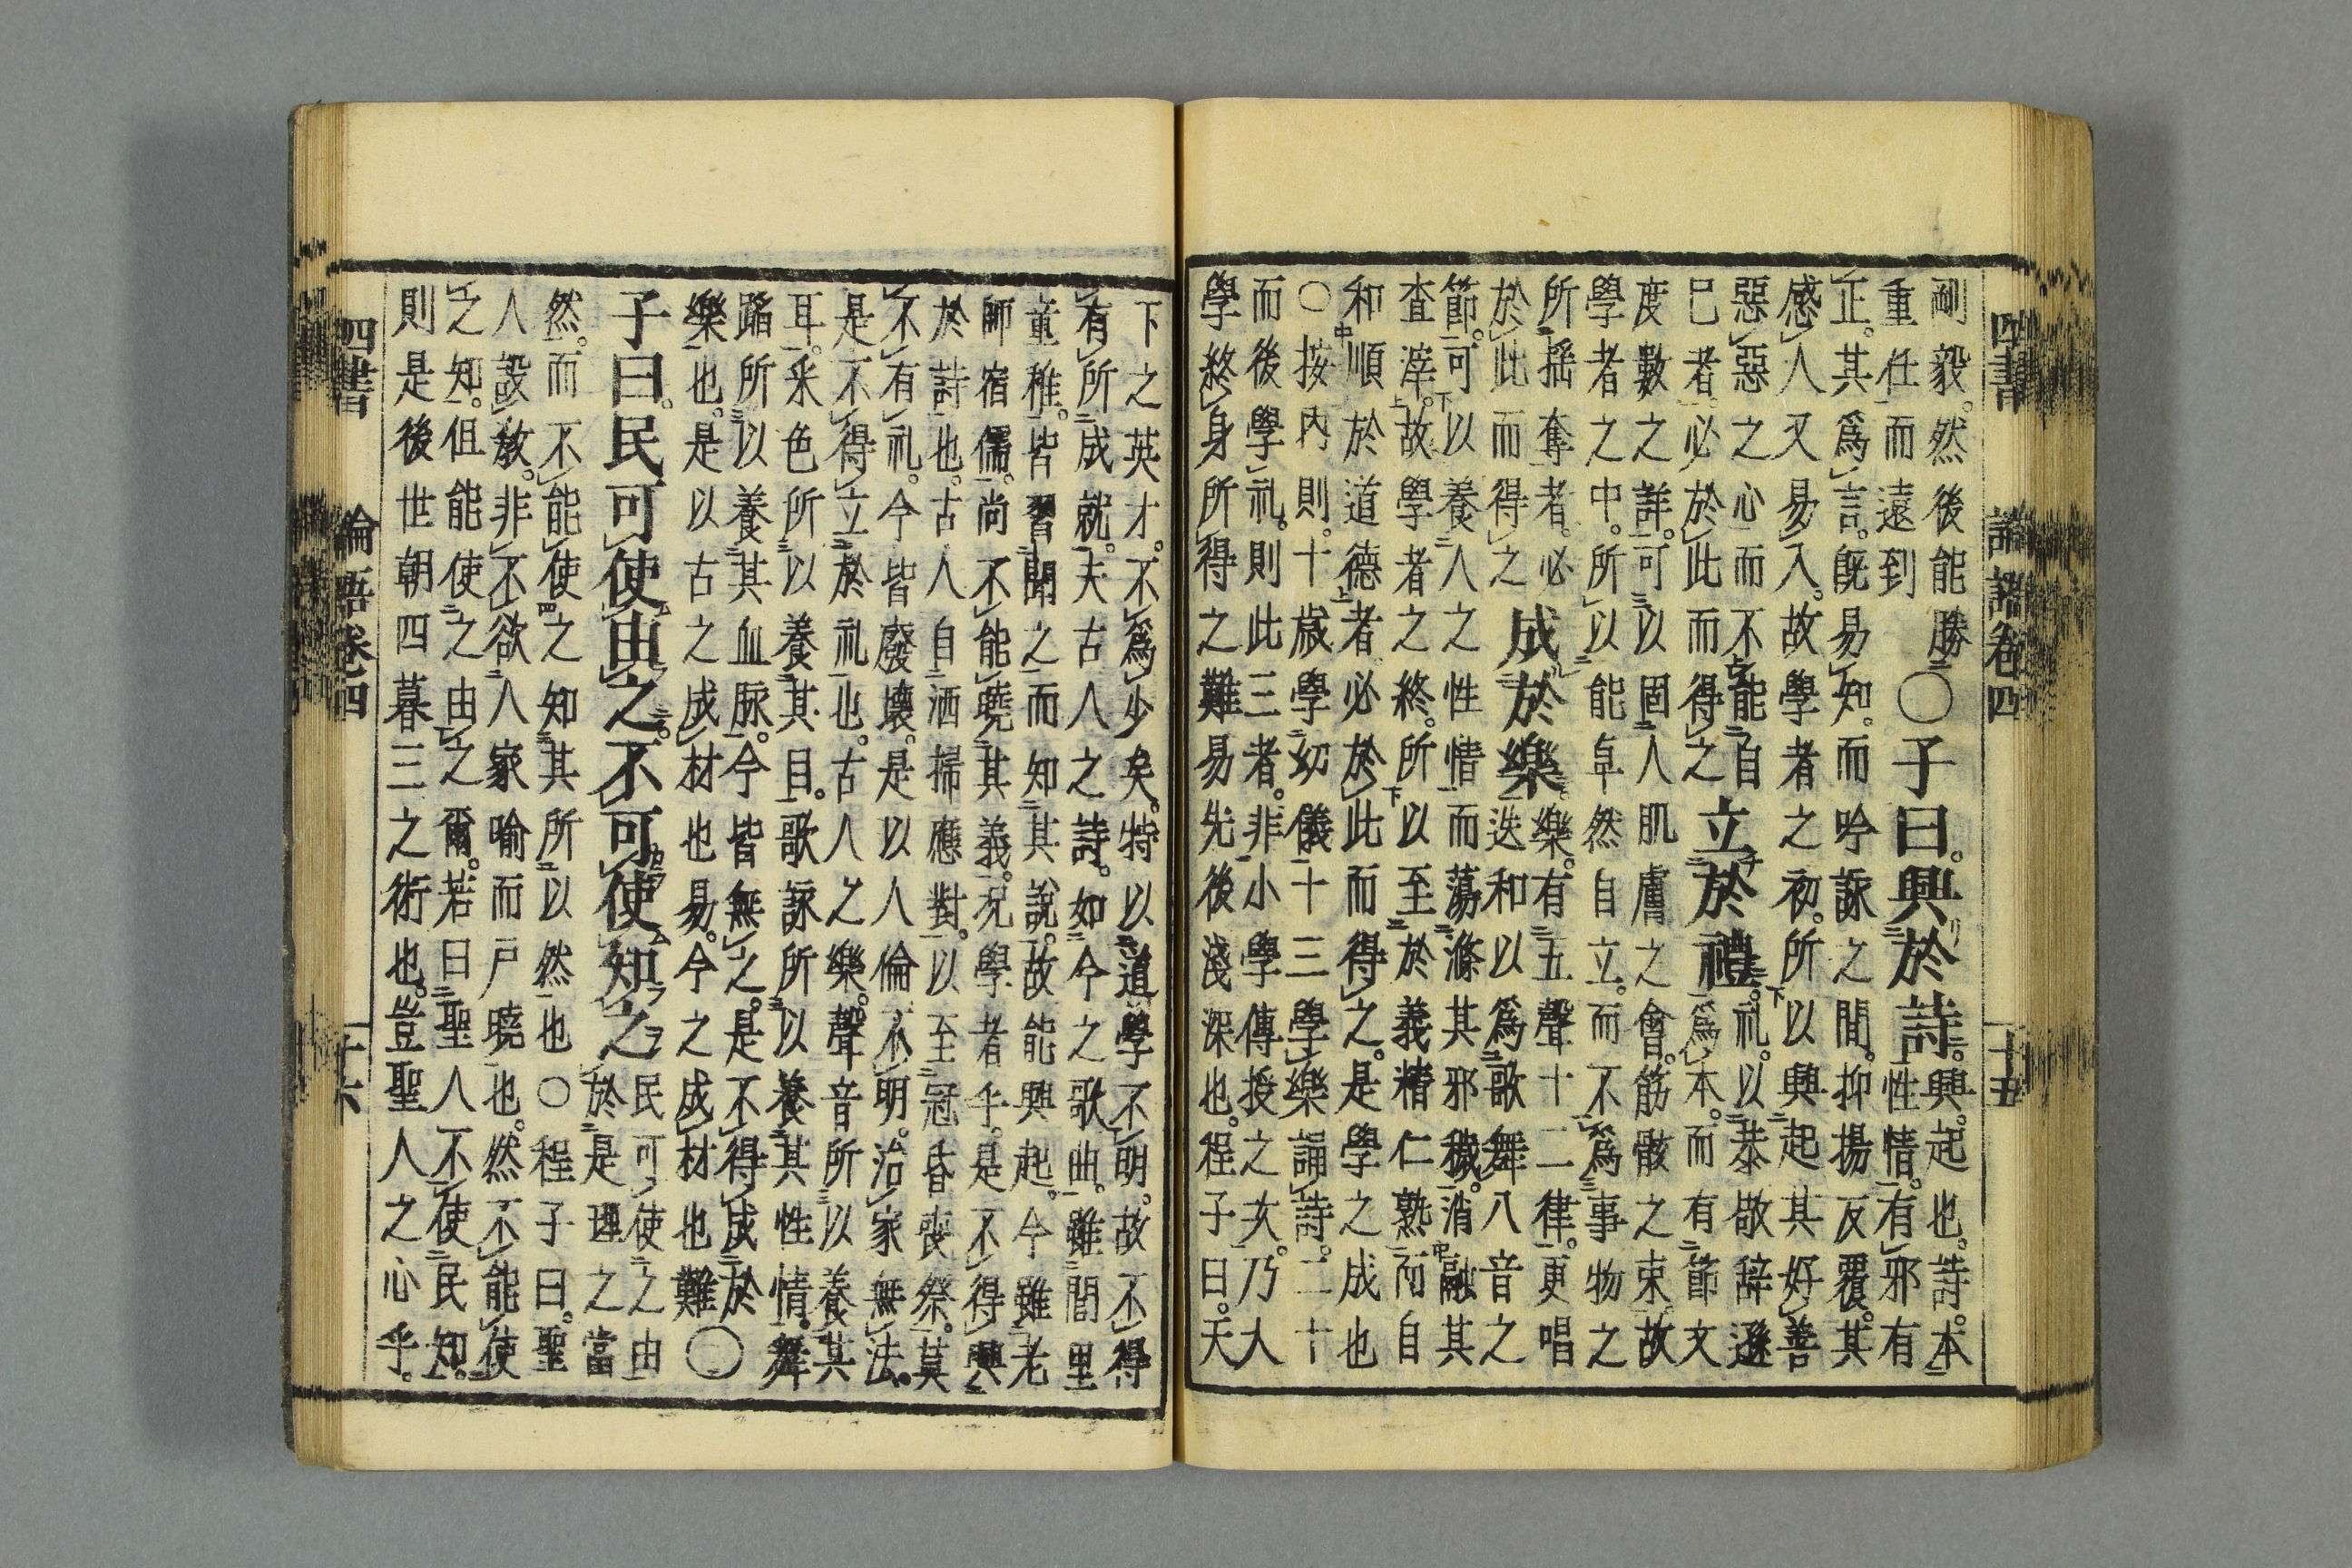 四書 論語卷四 二十五
剛毅。然後能勝
重任而遠到
〇子曰。興於詩。興。起也。詩。本
性情。有邪有
正。其爲言。既易知。而吟詠之間。抑揚反覆。其
感人又易入。故學者之初。所以興起其好善
惡惡之心而不能自
已者。必於此而得之
立於禮。礼。以恭敬辞遜
爲本。而有節文
度數之詳。可以固人肌膚之會。筋骸之束。故
學者之中。所以能卓然自立。而不爲事物之
所揺奪者。必
於此而得之
成於樂。樂。有五聲十二律。更唱
迭和以爲歌舞八音之
節。可以養人之性情而蕩滌其邪穢。消融其
査滓。故學者之終。所以至於義精仁熟而自
和順於道德者必於此而得之。是學之成也
〇按内則。十歳學幼儀十三學樂誦詩。二十
而後學礼。則此三者。非小學傳授之次。乃大
學終身所得之難易先後淺深也。程子曰。天
下之英才。不爲少矣。特以道學不明。故不得
有所成就。夫古人之詩。如今之歌曲。雖閭里
童稚。皆習聞之而知其說。故能興起。今雖老
師宿儒。尚不能曉其義。况學者乎。是不得興
於詩也。古人自洒掃應對。以至冠昏喪祭。莫
不有礼。今皆廢壞。是以人倫不明。治家無法。
是不得立於礼也。古人之樂。聲音所以養其
耳。采色所以養其目。歌詠所以養其性情。舞
蹈所以養其血脉。今皆無之。是不得成於
樂也。是以古之成材也易。今之成材也難〇
子曰。民可使由之。不可使知之民可使之由
於是理之當
然。而不能使之知其所以然也〇程子曰。聖
人設敎。非不欲人家喻而戸曉也。然不能使
之知。但能使之由之爾。若曰聖人不使民知。
則是後世朝四暮三之術也。豈聖人之心乎。
四書 論語卷四 二十六